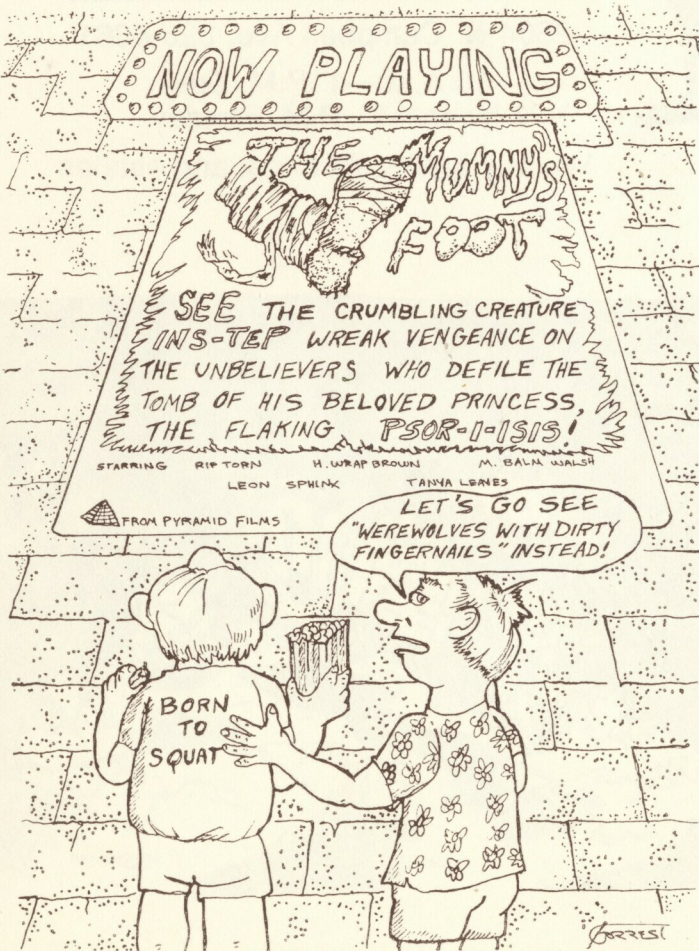 NOW PLAYING
THE MUMMY'S
FOOT
SEE THE CRUMBLING CREATURE
INS-TEP WREAK VENGEANCE ON
THE UNBELIEVERS WHO DEFILE THE
TOMB OF HIS BELOVED PRINCESS,
THE FLAKING PSOR-I-ISIS!
STARRING RIP TORN H. WRAP BROWN M. BALM WALSH
LEON SPHINX TANYA LEAVES
FROM PYRAMID FILMS
LET'S GO SEE
"WEREWOLVES WITH DIRTY
FINGERNAILS" INSTEAD!
BORN
TO
SQUAT
FORREST